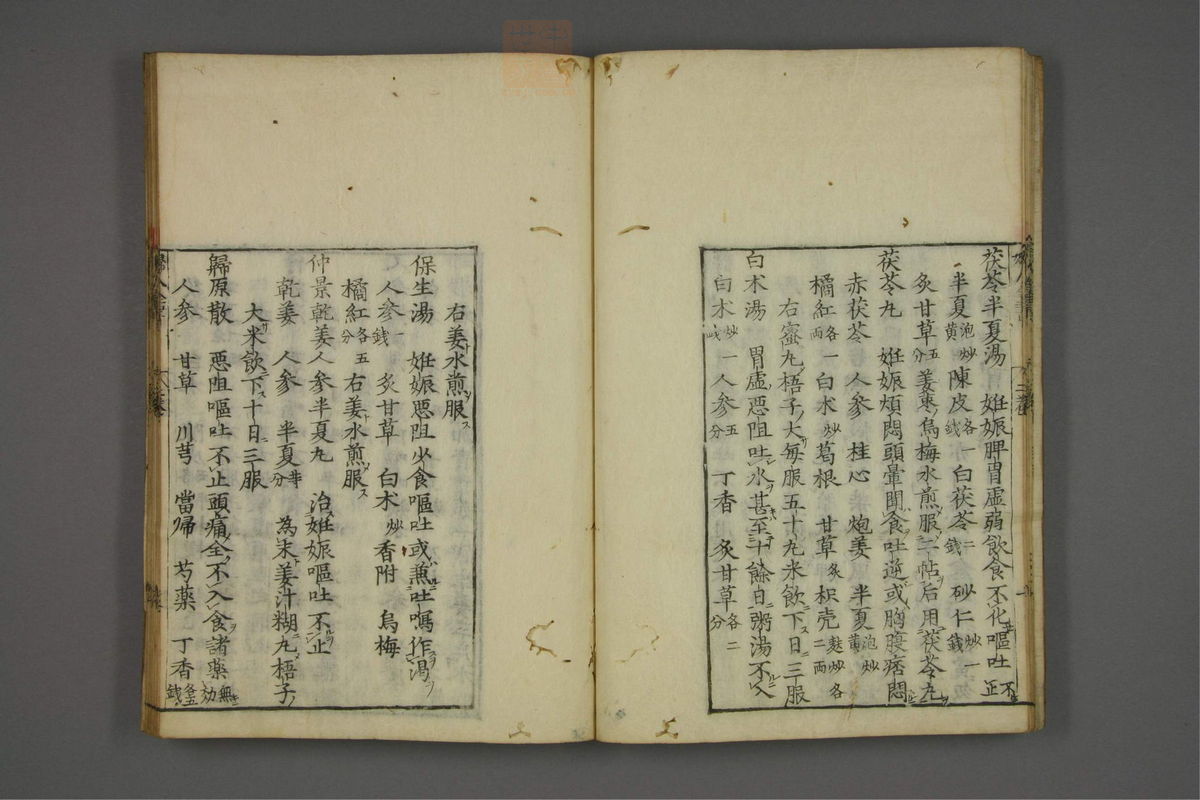 茯苓半夏湯 妊娠脾胃虚弱飲食不化嘔吐不止
半夏泡炒黄 陳皮各一錢 白茯苓二錢 砂仁炒一錢
炙甘草五分 姜棗烏梅水煎服二帖后用茯苓丸
茯苓丸 妊娠煩悶頭暈聞食吐逆或胸腹痞悶
赤茯苓 人參 桂心 炮姜 半夏泡炒黄
橘紅各一兩 白朮炒 葛根 甘草炙 枳壳麩炒各二兩
右蜜丸梧子大每服五十丸米飲下日三服
白朮湯 胃虚惡阻吐水甚至十餘日粥湯不入
白朮炒一錢 人參五分 丁香 炙甘草各二分
右姜水煎服
保生湯 妊娠惡阻少食嘔吐或兼吐瀉作渴
人參一錢 炙甘草 白朮炒 香附 烏梅
橘紅各五分 右姜水煎服
仲景乾姜人參半夏丸 治妊娠嘔吐不止
乾姜 人參 半夏等分 為末姜汁糊丸梧子
大米飲下十日三服
歸原散 惡阻嘔吐不止頭痛全不入食諸藥無効
人參 甘草 川芎 當歸 芍藥 丁香各五錢